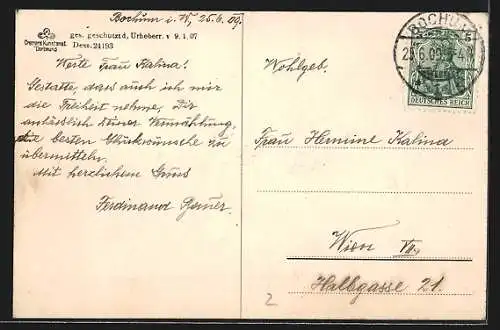 Bochum i. W., 25.6.09.
ges. geschützt, Urheberr. v 9.1.07
Dess. 24193
Dortmund
Werte Frau Kalina!
Gestatte, dass auch ich mir
die Freiheit nehme, Dir
anlässlich Deiner Vermählung,
die besten Glückwünsche zu
übermitteln.
Mit herzlichem Gruss
Ferdinand
BOCHUM
25.6.09
DEUTSCHES REICH
Wohlgeb.
Frau Hermine Kalina
Wien VII.
Halbgasse 21.
2